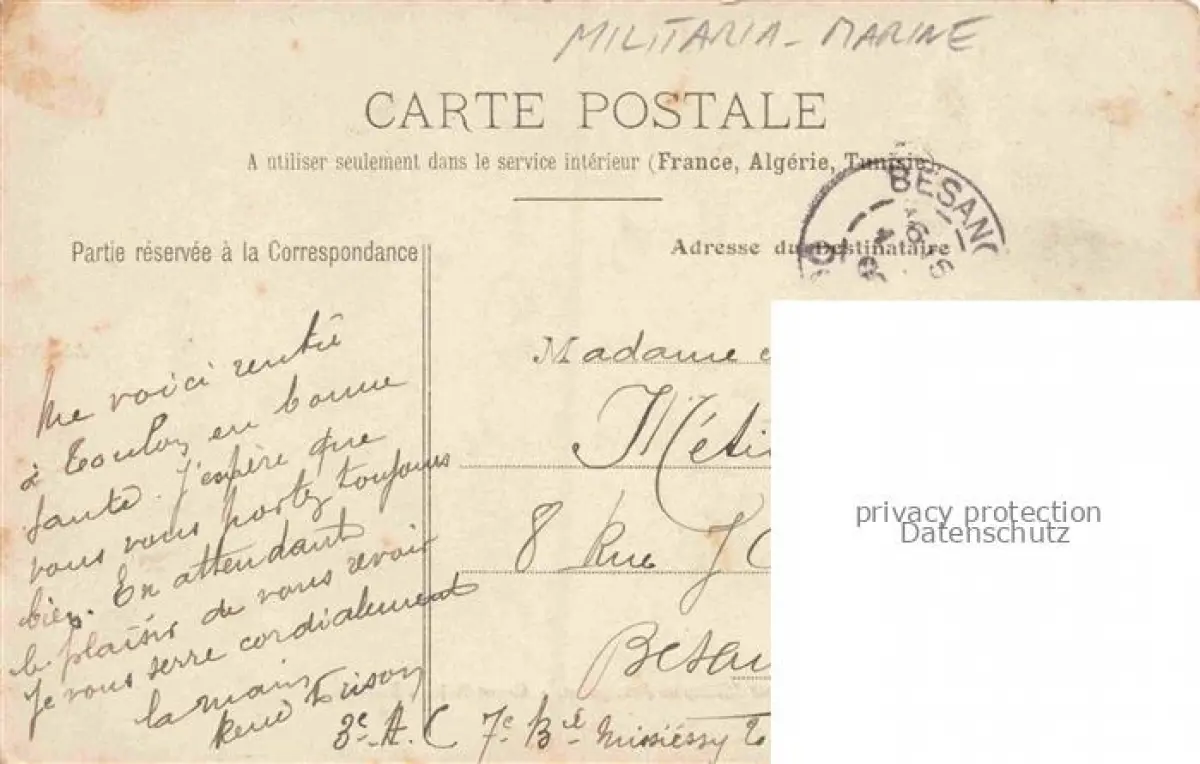 MILITARIA - MARINE
CARTE POSTALE
A utiliser seulement dans le service intérieur (France, Algérie, Tunisie)
BESANÇ
Partie réservée à la Correspondance
Adresse du Destinataire
Me voici rentré
à Toulon en bonne
santé. J'espère que
vous vous portez toujours
bien. En attendant
le plaisir de vous revoir
Je vous serre cordialement
la main
René
3e A. C 7e Bie Missiessy
Madame
8 Rue J
Besan
privacy protection
Datenschutz